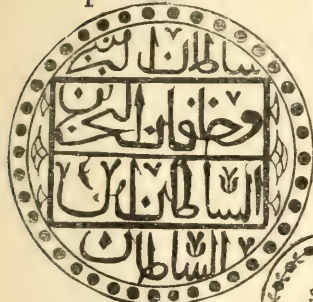 سلطان البرين
وخاقان البحرين
السلطان بن
السلطان